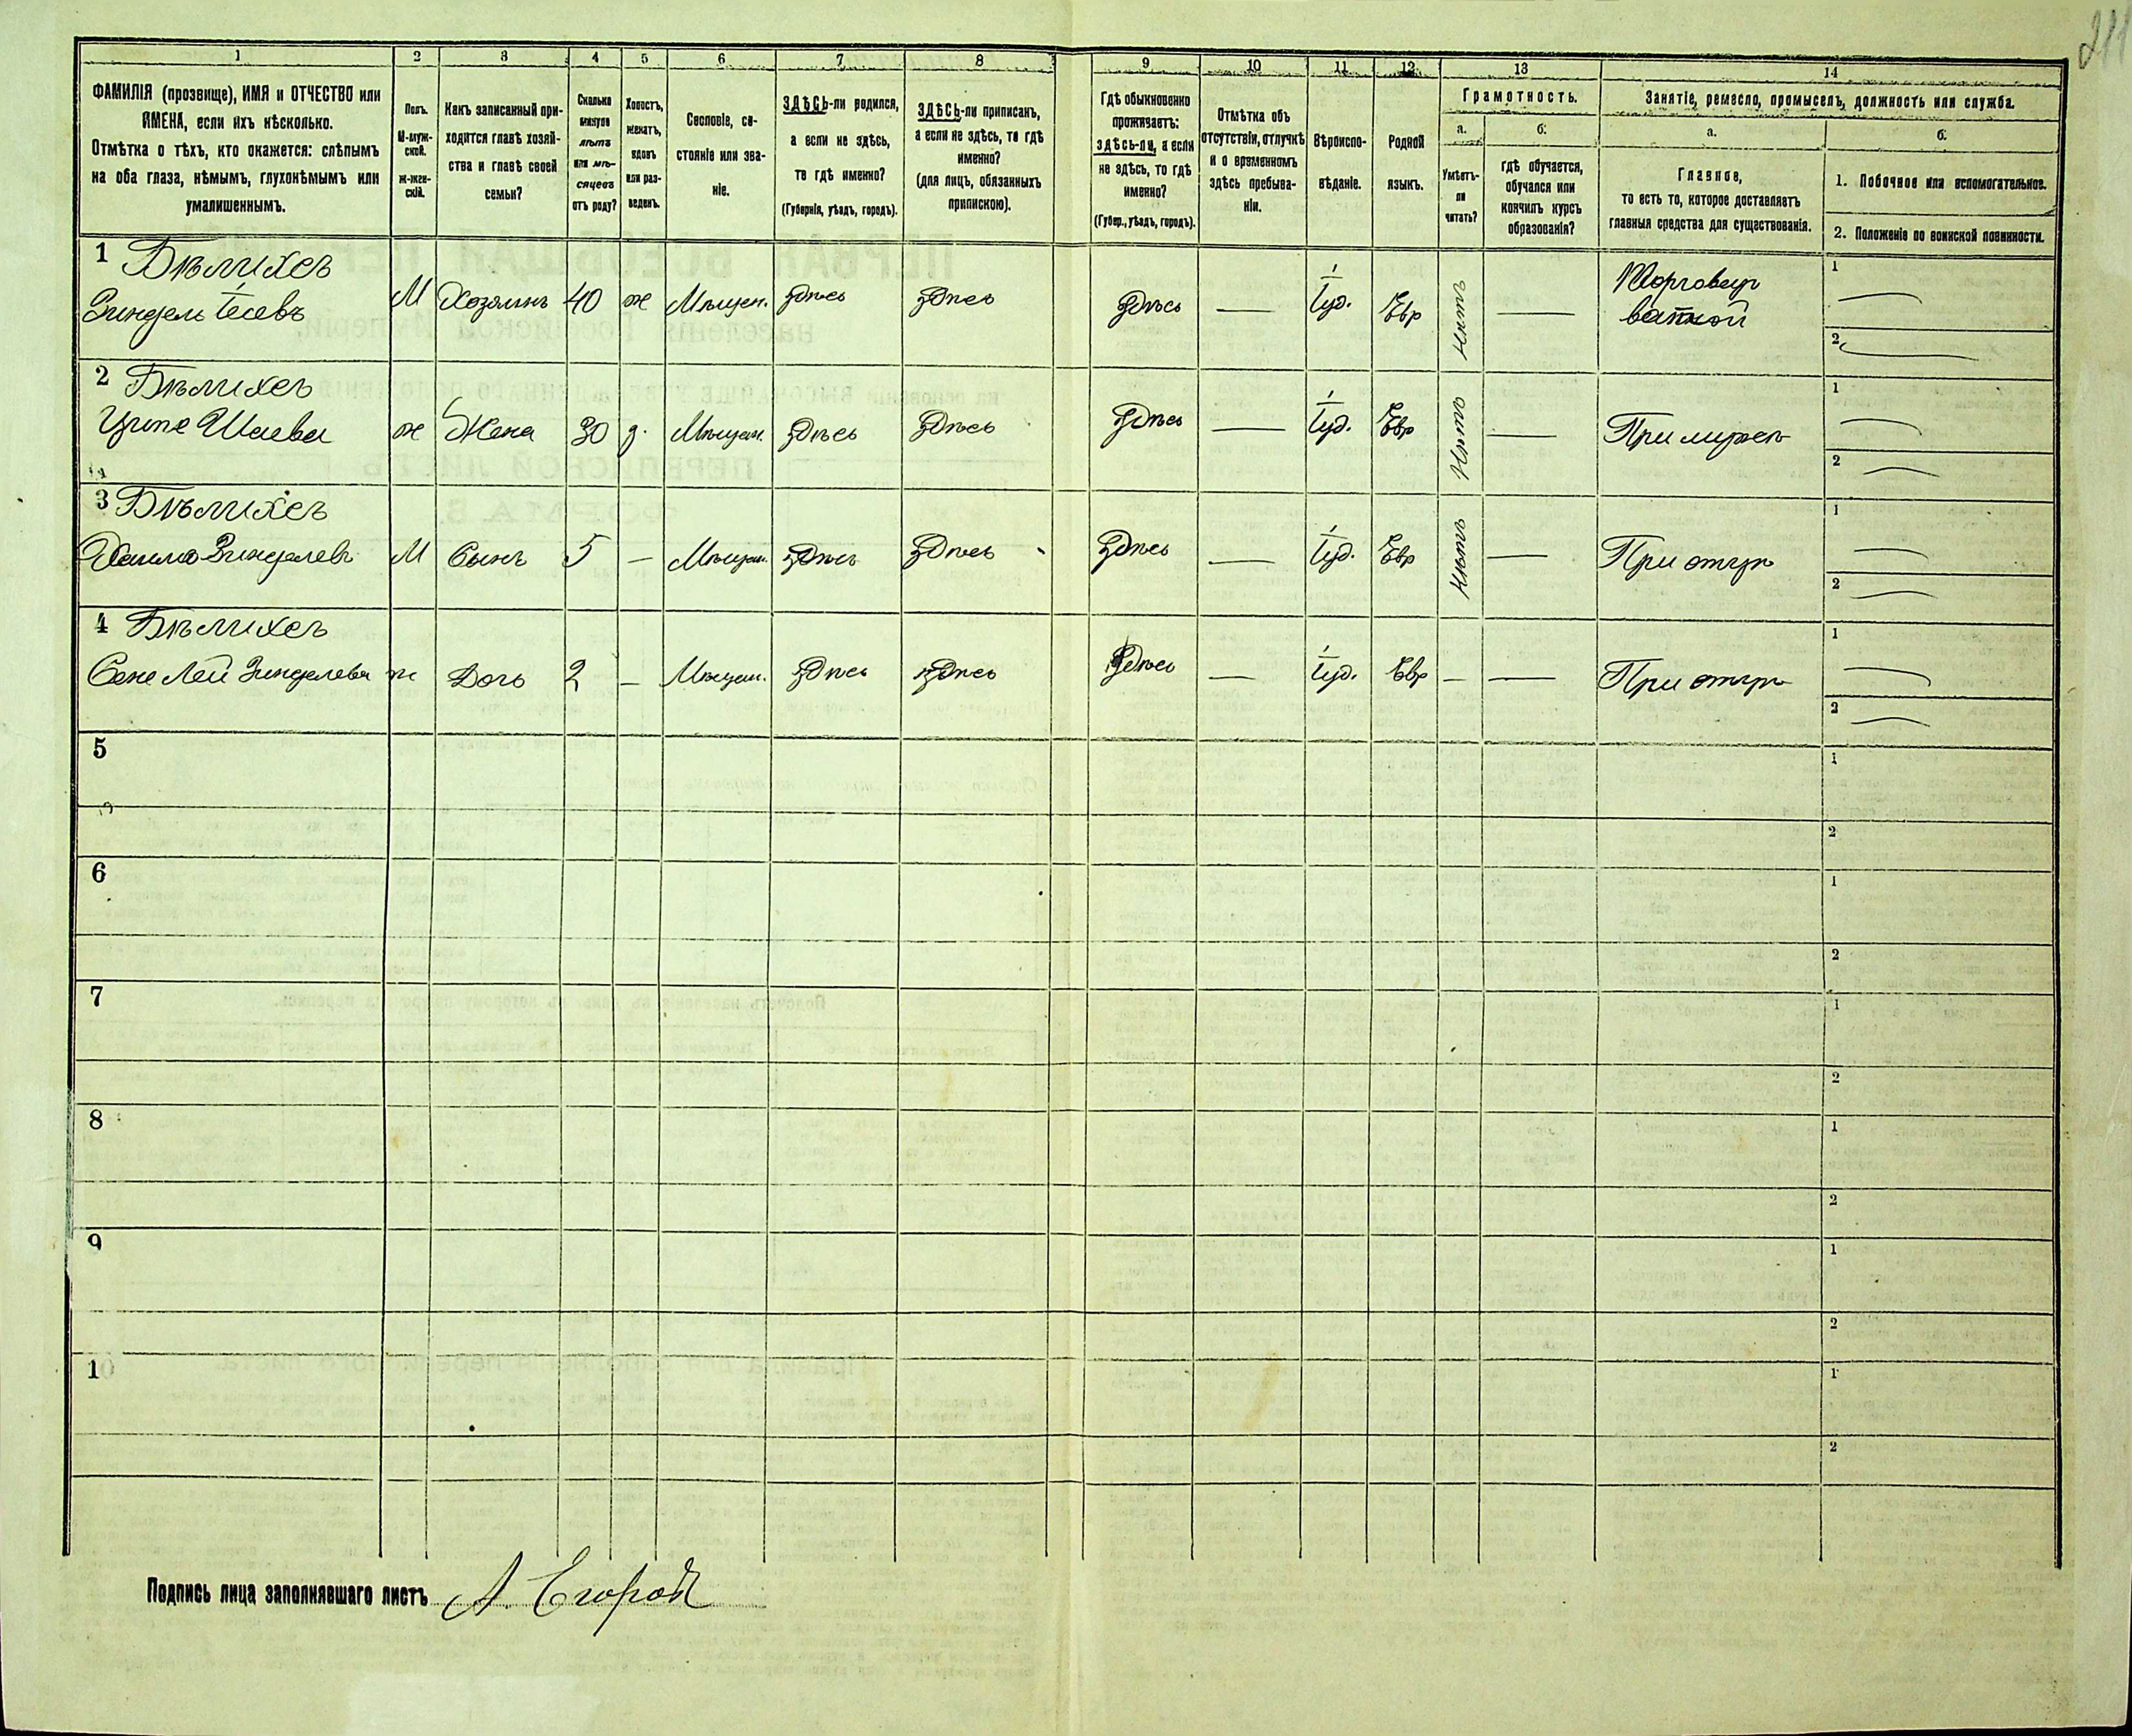 211
1
2
3
4
5
6
7
8
9
10
11
12
13
14
ФАМИЛІЯ (прозвище), ИМЯ и ОТЧЕСТВО или
ИМЕНА, если ихъ нѣсколько.
Отмѣтка о тѣхъ, кто окажется: слѣпымъ
на оба глаза, нѣмымъ, глухонѣмымъ или
умалишеннымъ.
Полъ.
М-муж-
ской.
Ж-жен-
скій.
Какъ записанный при-
ходится главѣ хозяй-
ства и главѣ своей
семьи?
Сколько
минуло
лѣтъ
или мѣ-
сяцевъ
отъ роду?
Холостъ,
женатъ,
вдовъ
или раз-
веденъ.
Сословіе, со-
стояніе или зва-
ніе.
ЗДѢСЬ-ли родился,
а если не здѣсь,
то гдѣ именно?
(Губернія, уѣздъ, городъ).
ЗДѢСЬ-ли приписанъ,
а если не здѣсь, то гдѣ
именно?
(для лицъ, обязанныхъ
припискою).
Гдѣ обыкновенно
проживаетъ:
здѣсь-ли, а если
не здѣсь, то гдѣ
именно?
(Губер., уѣздъ, городъ).
Отмѣтка объ
отсутствіи, отлучкѣ
и о временномъ
здѣсь пребыва-
ніи.
Вѣроиспо-
вѣданіе.
Родной
языкъ.
Грамотность.
а.
Умѣетъ-
ли
читать?
б.
гдѣ обучается,
обучался или
кончилъ курсъ
образованія?
Занятіе, ремесло, промыселъ, должность или служба.
а.
Главное,
то есть то, которое доставляетъ
главныя средства для существованія.
б.
1. Побочное или вспомогательное.
2. Положеніе по воинской повинности.
1 Бѣлихесъ
М Хозяинъ 40 ж Мѣщан. Здѣсь Здѣсь Здѣсь — Іуд. Евр Нѣтъ —
1 —
2 —
2 Бѣлихесъ
ж Жена 30 з. Мѣщан. Здѣсь Здѣсь Здѣсь — Іуд. Евр Нѣтъ — При мужѣ
1 —
2 —
3 Бѣлихесъ
М Сынъ 5 — Мѣщан. Здѣсь Здѣсь Здѣсь — Іуд. Евр Нѣтъ — При отцѣ
1 —
2 —
4 Бѣлихесъ
ж Дочь 2 — Мѣщан. Здѣсь Здѣсь Здѣсь — Іуд. Евр — — При отцѣ
1 —
2 —
5
1
2
6
1
2
7
1
2
8
1
2
9
1
2
10
1
2
Подпись лица заполнявшаго листъ А.